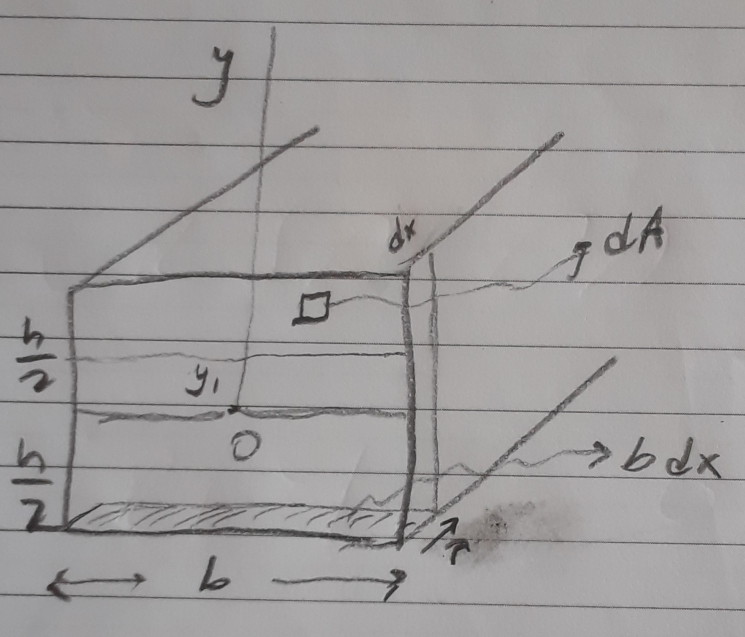 y
dx
dA
h/2
y₁
O
h/2
b dx
τ
b